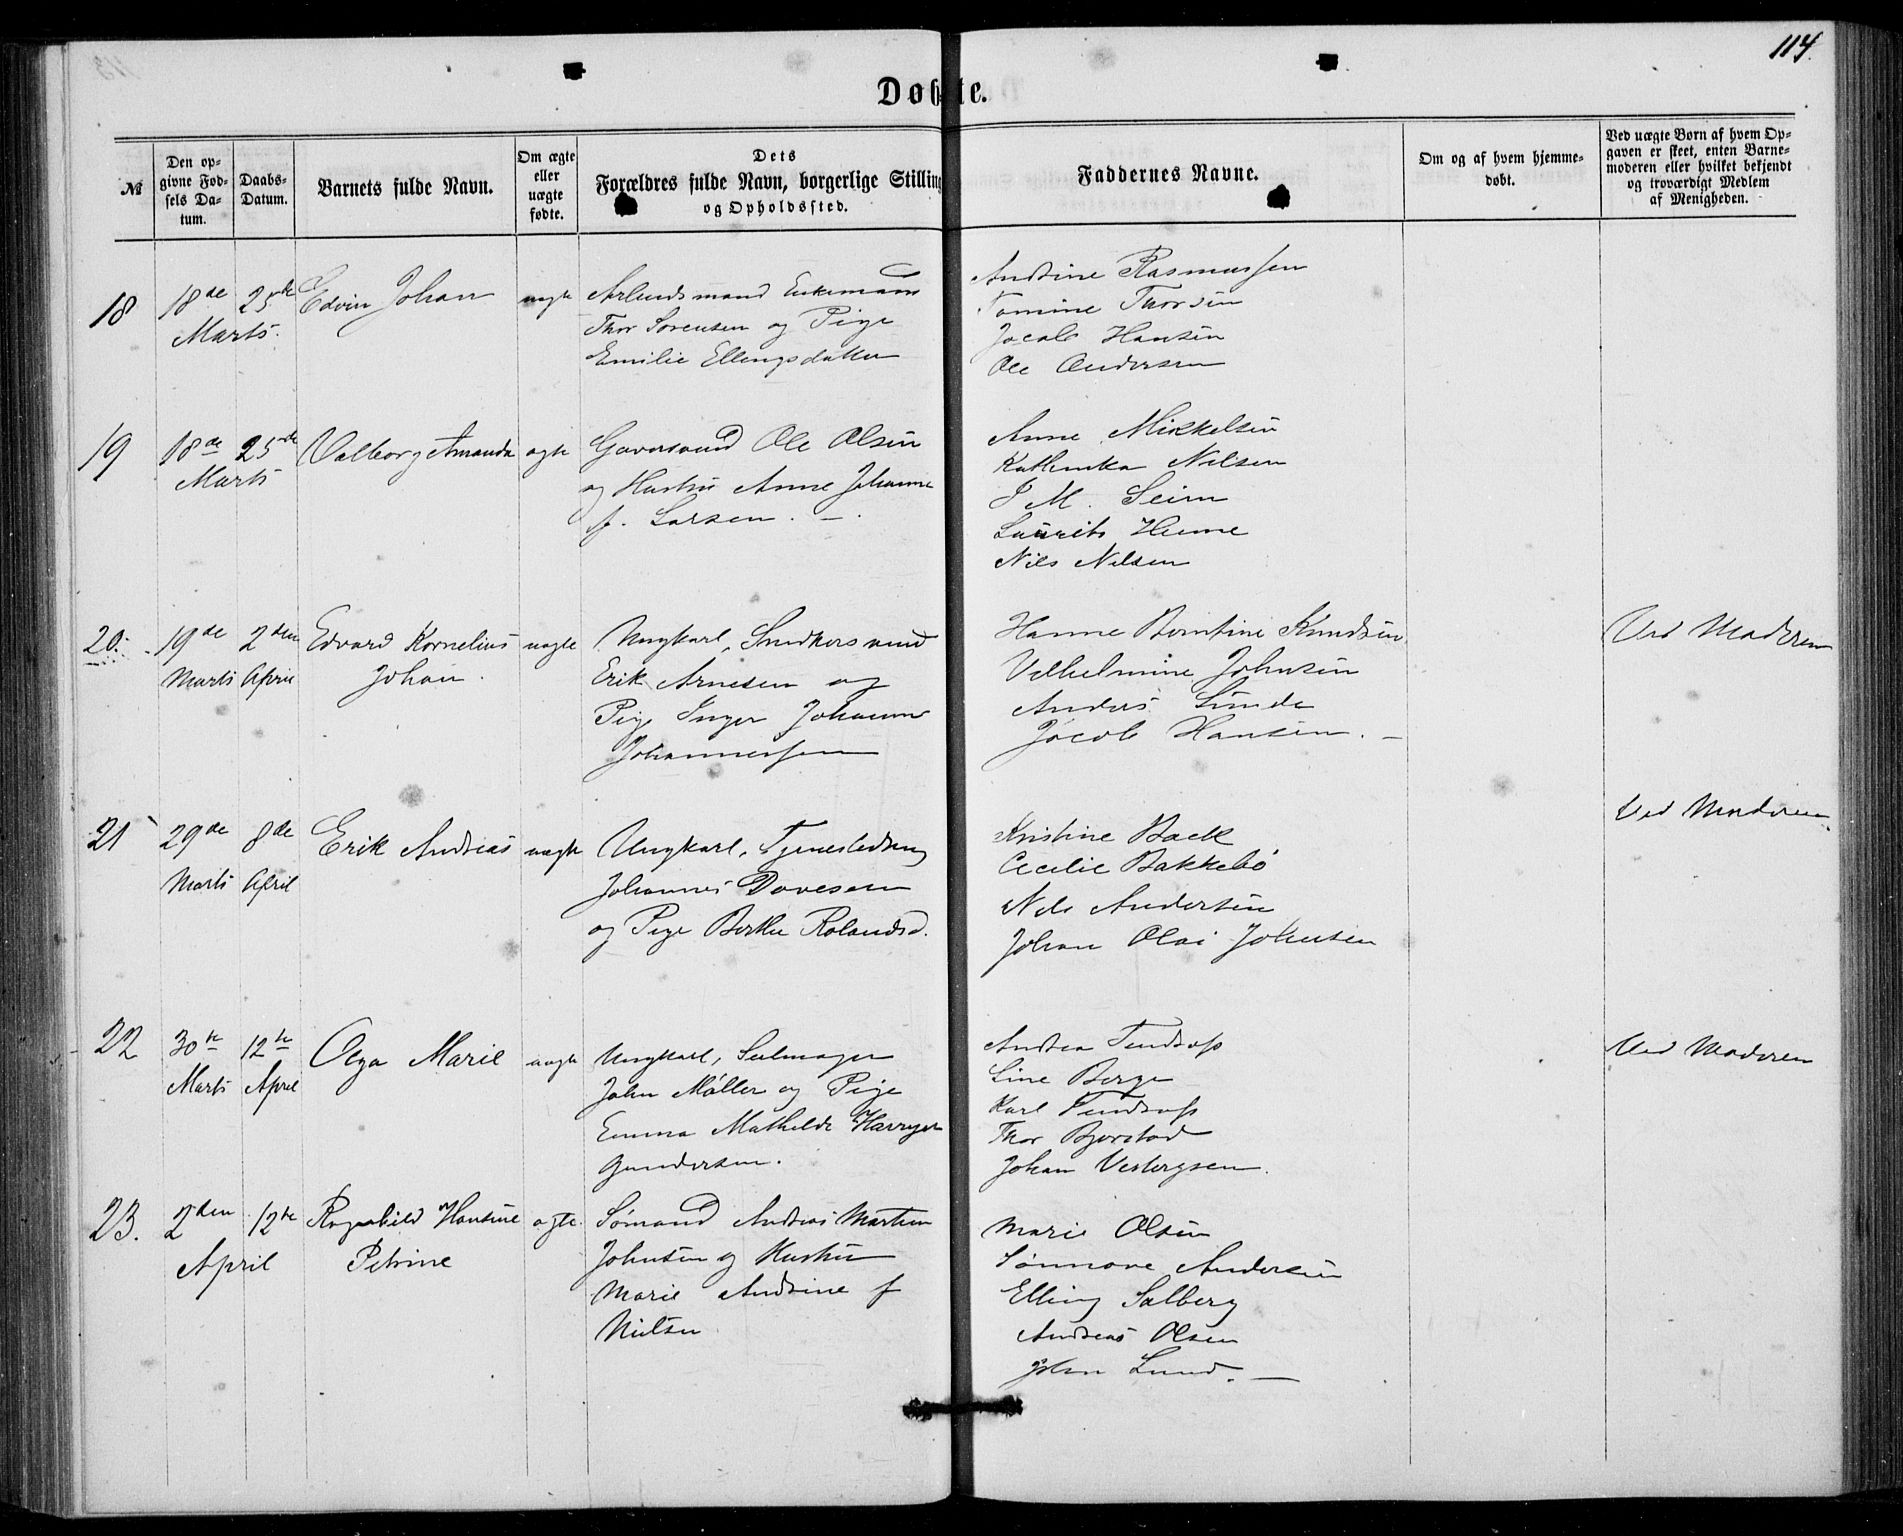 114.
Døbte.
№
Den opgivne Fødsels Datum.
Daabs-Datum.
Barnets fulde Navn.
Om ægte eller uægte fødte.
Dets Forældres fulde Navn, borgerlige Stilling og Opholdssted.
Faddernes Navne.
Om og af hvem hjemmedøbt.
Ved uægte Børn af hvem Opgaven er skeet, enten Barnemoderen eller hvilket bekjendt og troværdigt Medlem af Menigheden.
18 18de Marts 25de Edvin Johan uægte
Arbeidsmand Enkemand
Thor Sorensen og Pige
Emilie Ellingsdatter
Andrine Rasmussen
Tomine Thorsen
Jacob Hansen
Ole Andersen
19 18de Marts 25de Valborg Amanda ægte
Garversvend Ole Olsen
og Hustru Anne Johanne
f. Larsen. —
Anne Mikkelsen
Kathinka Nilsen
J M. Seim
Laurits Hume
Nils Nilsen
20. 19de Marts 2den April Edvard Kornelius Johan. uægte
Ungkarl, Snedkersvend
Erik Arnesen og
Pige Inger Johanne
Johannessen
Hanne Berntine Knudsen
Vilhelmine Johnsen
Anders Sunde
Jacob Hansen. —
Ved Moderen
21 29de Marts 8de April Erik Andreas uægte
Ungkarl, Tjenestedreng
Johannes Dovesen
og Pige Berthe Rolandsd.
Kristine Baek
Cecilie Bakkebø
Nils Andersen
Johan Olai Johnsen
Ved Moderen.
22 30te Marts 12te April Olga Marie uægte
Ungkarl, Seilmager
John Møller og Pige
Emma Mathilde
Gundersen.
Andrea
Line Berge
Karl
Thor Bjorstad
Johan Vesbergsen.
Ved Moderen
23. 2den April 12te Ragnhild Hansine Petrine ægte.
Sømand Andreas Martin
Johnsen og Hustru
Marie Andrine f
Nielsen
Marie Olsen
Sønnove Andersen
Elling Salberg
Andreas Olsen
John Lund. —